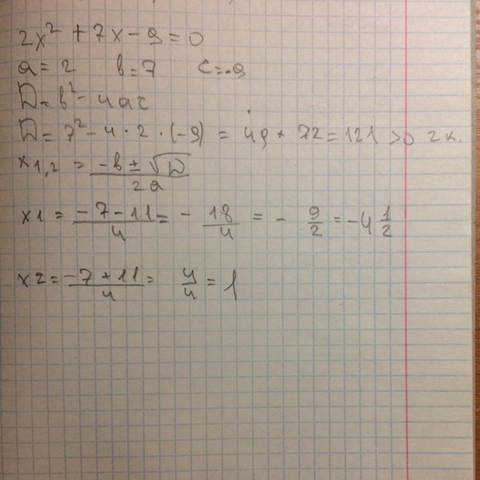 2x² + 7x - 9 = 0
a = 2 b = 7 c = -9
D = b² - 4ac
D = 7² - 4 · 2 · (-9) = 49 + 72 = 121 > 0 2 к.
x1,2 = (-b ± √D) / 2a
x1 = (-7 - 11) / 4 = - 18/4 = - 9/2 = -4 1/2
x2 = (-7 + 11) / 4 = 4/4 = 1